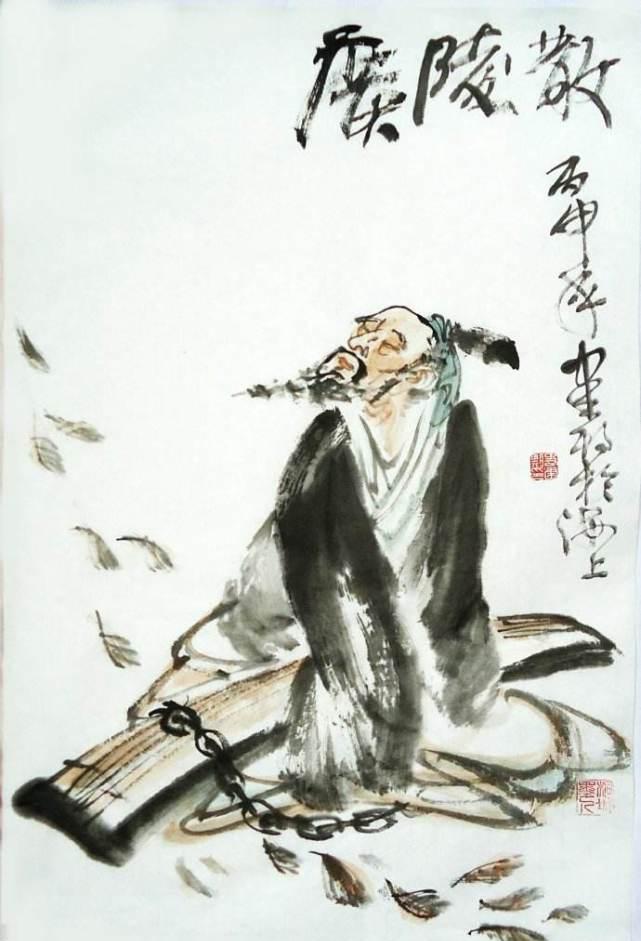 廣陵散
丙申年 於海上